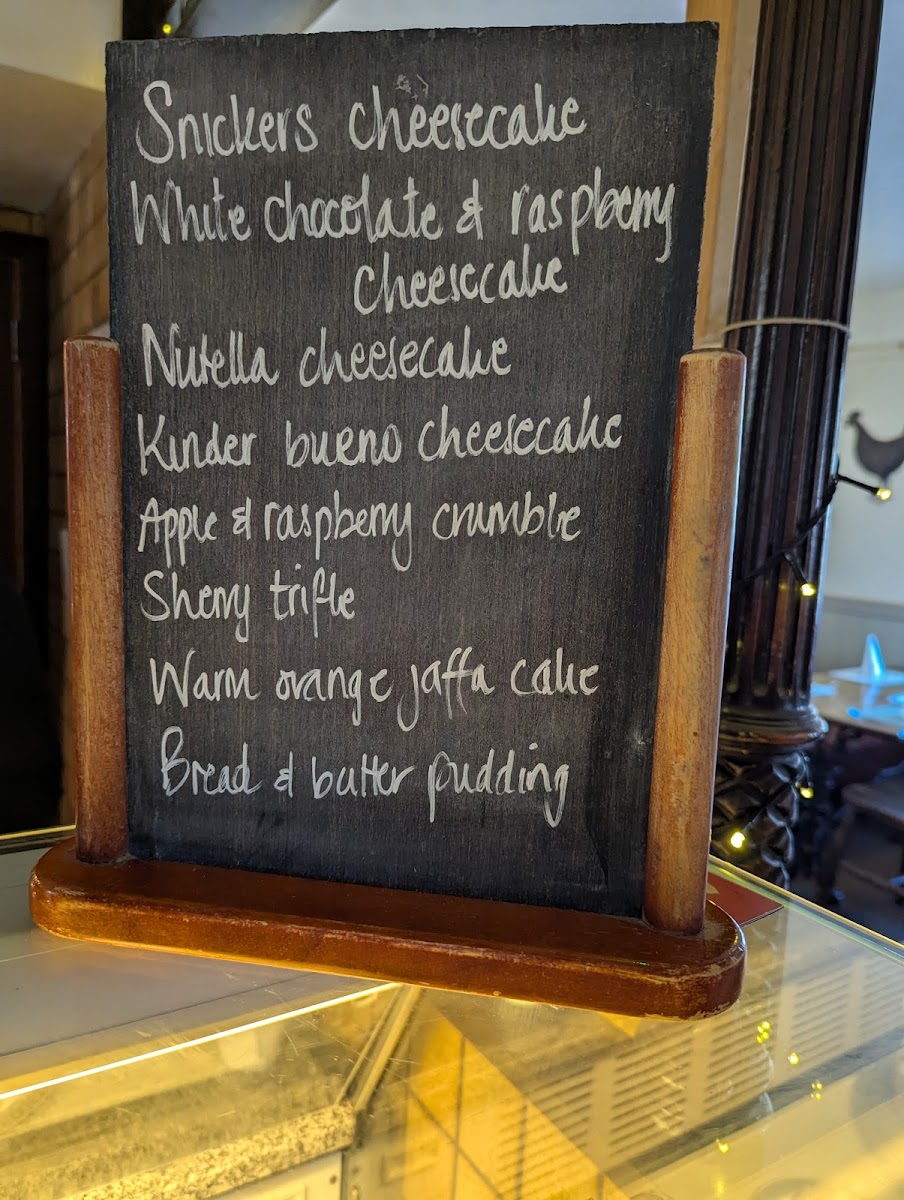 Snickers cheesecake
White chocolate & raspberry
cheesecake
Nutella cheesecake
Kinder bueno cheesecake
Apple & raspberry crumble
Sherry trifle
Warm orange jaffa cake
Bread & butter pudding